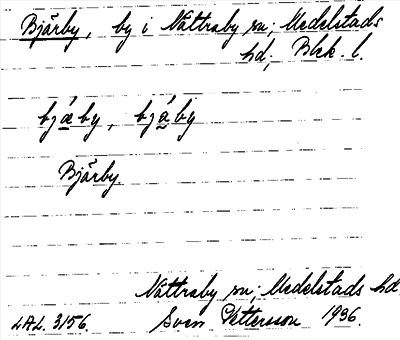 Bjärby, by i Nättraby sn; Medelstads
hd, Blek. l.
bjæ̀by, bjä̀by
Bjärby.
Nättraby sn; Medelstads hd
LAL. 3156. Sven Pettersson 1936.